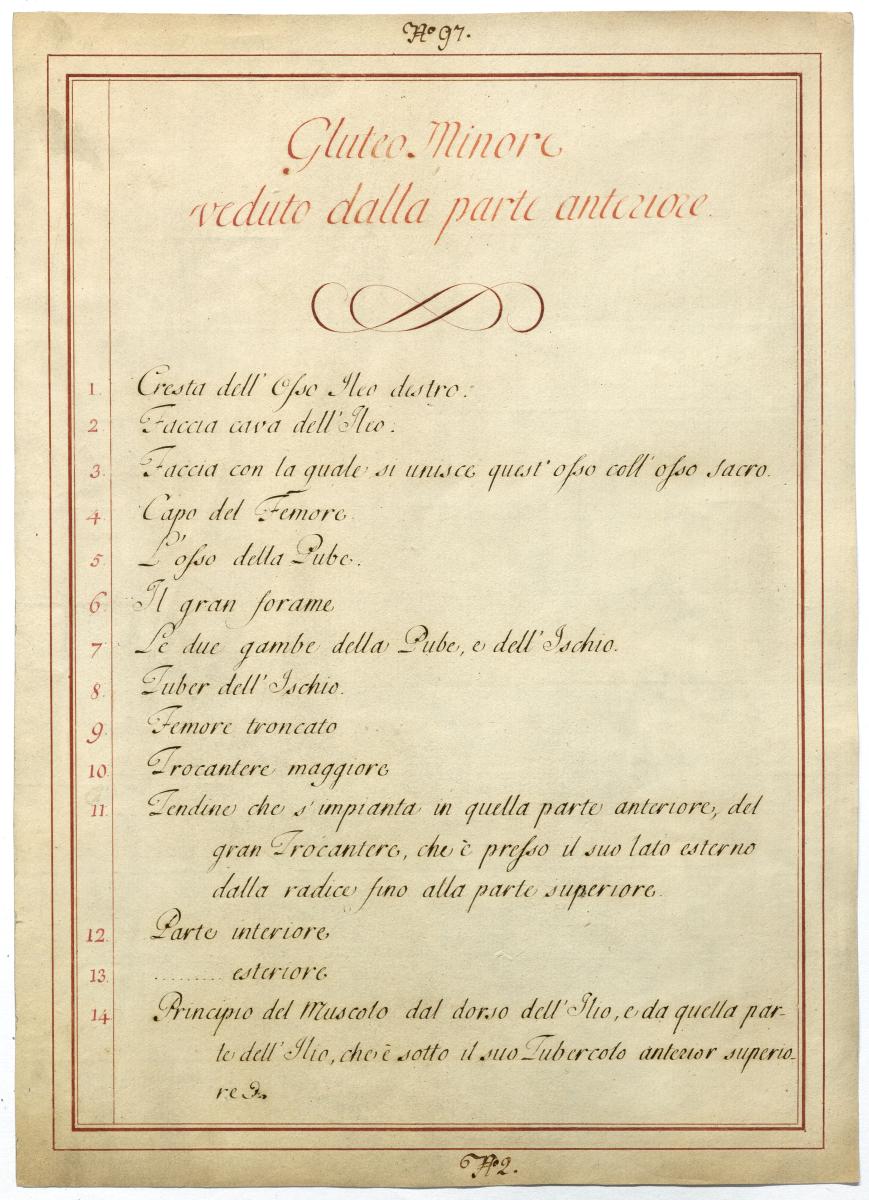 Nº 97.
Gluteo Minore
veduto dalla parte anteriore
1. Cresta dell' Osso Ileo destro.
2 Faccia cava dell' Ileo.
3. Faccia con la quale si unisce quest' osso coll' osso sacro.
4 Capo del Femore
5 L'osso della Pube.
6 Il gran forame
7 Le due gambe della Pube, e dell' Ischio.
8. Tuber dell' Ischio.
9. Femore troncato
10. Trocantere maggiore
11. Tendine che s'impianta in quella parte anteriore, del
gran Trocantere, che è presso il suo lato esterno
dalla radice fino alla parte superiore.
12. Parte interiore
13. ......... esteriore
14 Principio del Muscolo dal dorso dell' Ilio, e da quella par-
te dell' Ilio, che è sotto il suo Tubercolo anterior superio-
re
Nº 2.